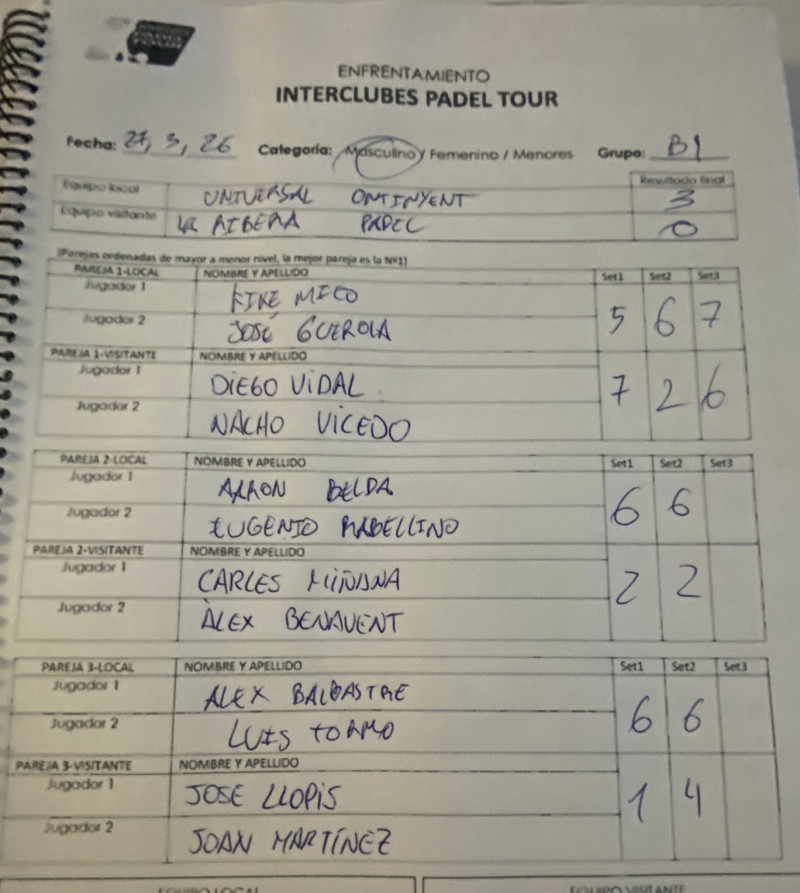 PADEL
TOUR
ENFRENTAMIENTO
INTERCLUBES PADEL TOUR
Fecha: 27, 3, 26 Categoría: Masculino / Femenino / Menores Grupo: B1
Resultado final
Equipo local UNIVERSAL ONTINYENT 3
Equipo visitante LA RIBERA PADEL 0
(Parejas ordenadas de mayor a menor nivel, la mejor pareja es la Nº1)
PAREJA 1-LOCAL NOMBRE Y APELLIDO Set1 Set2 Set3
Jugador 1 KIKE MICO
5 6 7
Jugador 2 JOSÉ GUEROLA
PAREJA 1-VISITANTE NOMBRE Y APELLIDO
Jugador 1 DIEGO VIDAL
7 2 6
Jugador 2 NACHO VICEDO
PAREJA 2-LOCAL NOMBRE Y APELLIDO Set1 Set2 Set3
Jugador 1 AARON BELDA
6 6
Jugador 2 EUGENIO RABELLINO
PAREJA 2-VISITANTE NOMBRE Y APELLIDO
Jugador 1 CARLES MIÑANA
2 2
Jugador 2 ÀLEX BENAVENT
PAREJA 3-LOCAL NOMBRE Y APELLIDO Set1 Set2 Set3
Jugador 1 ALEX BALBASTRE
6 6
Jugador 2 LUIS TORMO
PAREJA 3-VISITANTE NOMBRE Y APELLIDO
Jugador 1 JOSE LLOPIS
1 4
Jugador 2 JOAN MARTÍNEZ
EQUIPO LOCAL EQUIPO VISITANTE